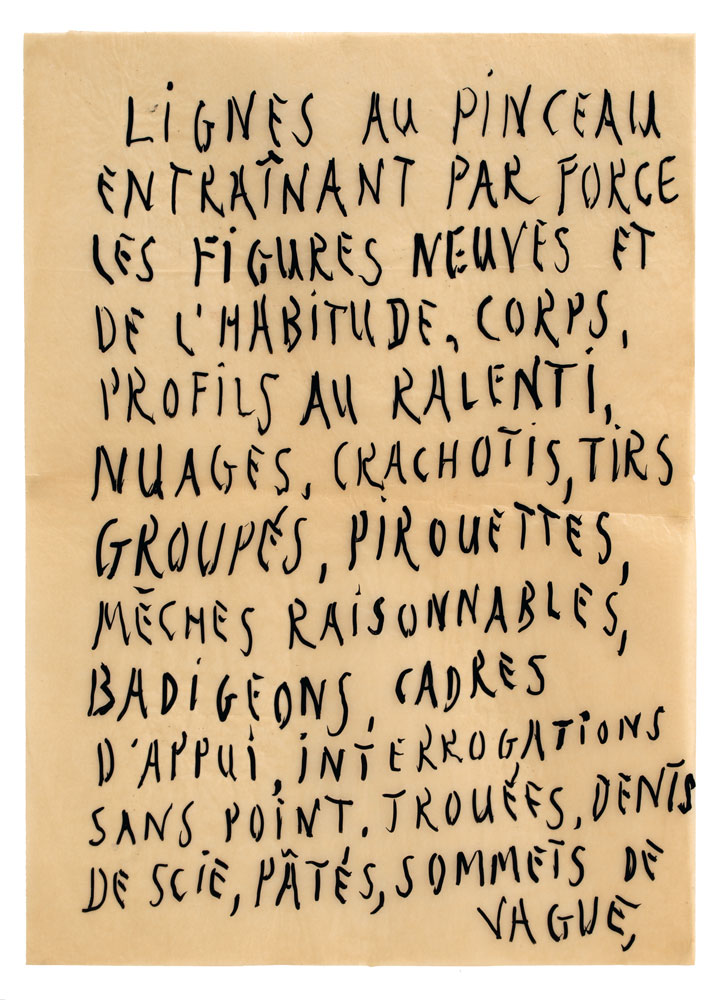 LIGNES AU PINCEAU
ENTRAÎNANT PAR FORCE
LES FIGURES NEUVES ET
DE L'HABITUDE, CORPS,
PROFILS AU RALENTI,
NUAGES, CRACHOTIS, TIRS
GROUPÉS, PIROUETTES,
MÈCHES RAISONNABLES,
BADIGEONS, CADRES
D'APPUI, INTERROGATIONS
SANS POINT. TROUÉES, DENTS
DE SCIE, PÂTÉS, SOMMETS DE
VAGUE,